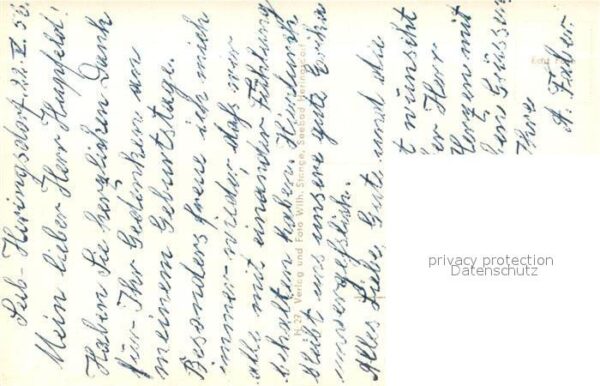 Seeb-Heringsdorf 22.V.50.
Mein lieber Herr Hupfeld!
Haben Sie herzlichen Dank
für Ihr Gedenken an
meinem Geburtstage.
Besonders freue ich mich
immer wieder, daß wir
alle mit einander Fühlung
behalten haben. Hierdurch
bleibt uns unsere gute Ecke
unvergeßlich.
Alles Liebe, Gute und die
t wünscht
er Herr
Herzen mit
en Grüssen
Ihre
A. Faber
H 27 Verlag und Foto Wilh. Stange, Seebad Heringsdorf
Echt Foto
privacy protection
Datenschutz